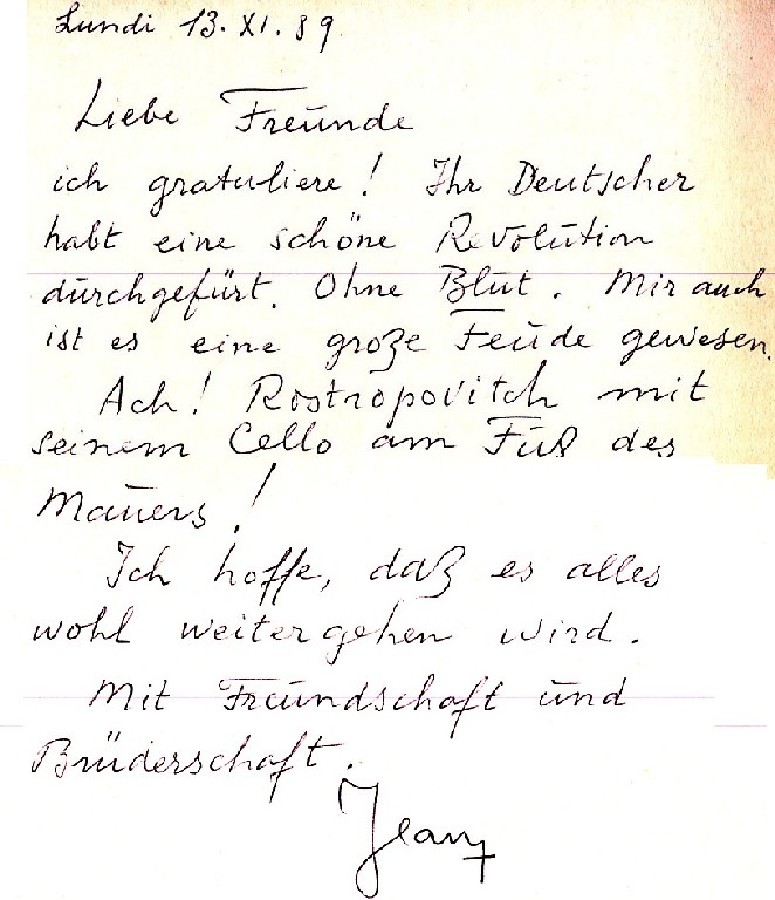 Lundi 13. XI. 89
Liebe Freunde
ich gratuliere! Ihr Deutscher
habt eine schöne Revolution
durchgefürt. Ohne Blut. Mir auch
ist es eine große Feude gewesen.
Ach! Rostropovitch mit
seinem Cello am Fuß des
Mauers!
Ich hoffe, daß es alles
wohl weiter gehen wird.
Mit Freundschaft und
Brüderschaft.
Jean